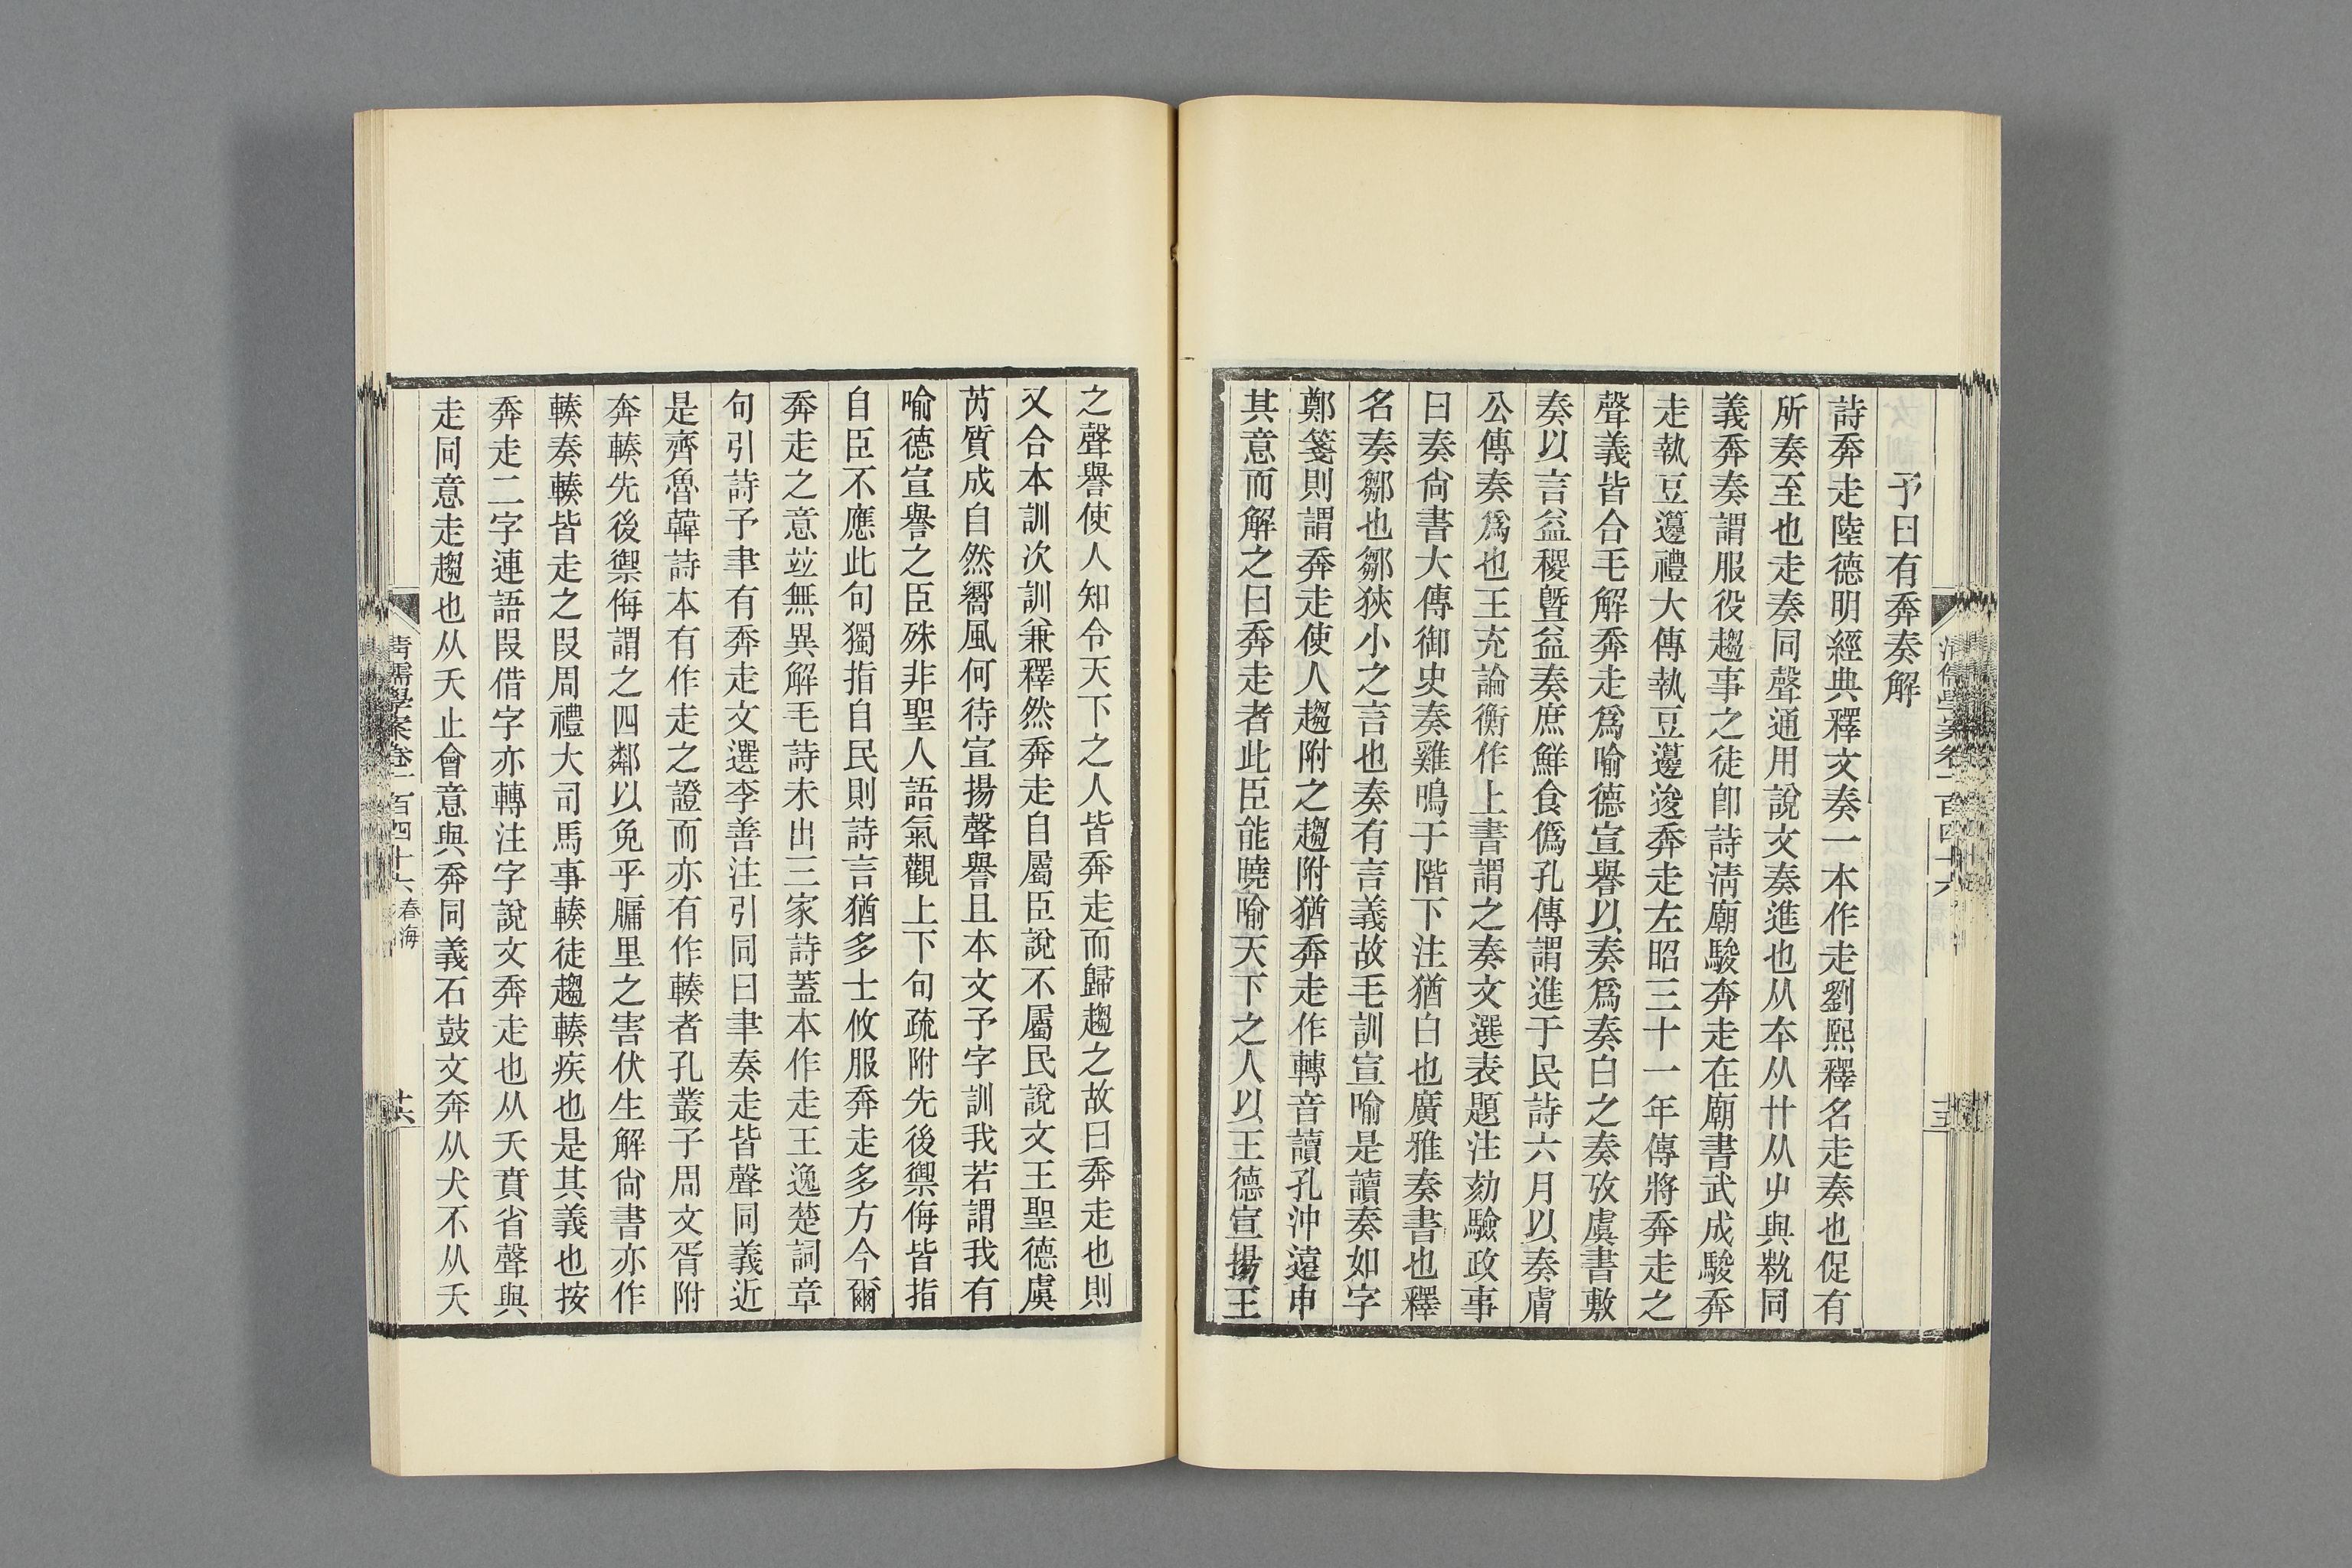 予曰有奔奏解
詩奔走陸德明經典釋文奏一本作走劉熙釋名走奏也促有
所奏至也走奏同聲通用說文奏進也从夲从廾从屮與𡴞同
義奔奏謂服役趨事之徒卽詩淸廟駿奔走在廟書武成駿奔
走執豆籩禮大傳執豆籩逡奔走左昭三十一年傳將奔走之
聲義皆合毛解奔走爲喻德宣譽以奏爲奏白之奏攷虞書敷
奏以言益稷曁益奏庶鮮食僞孔傳謂進于民詩六月以奏膚
公傳奏爲也王充論衡作上書謂之奏文選表題注劾驗政事
曰奏尙書大傳御史奏雞鳴于階下注猶白也廣雅奏書也釋
名奏鄒也鄒狹小之言也奏有言義故毛訓宣喻是讀奏如字
鄭箋則謂奔走使人趨附之趨附猶奔走作轉音讀孔沖遠申
其意而解之曰奔走者此臣能曉喻天下之人以王德宣揚王
之聲譽使人知令天下之人皆奔走而歸趨之故曰奔走也則
又合本訓次訓兼釋然奔走自屬臣說不屬民說文王聖德虞
芮質成自然嚮風何待宣揚聲譽且本文予字訓我若謂我有
喻德宣譽之臣殊非聖人語氣觀上下句疏附先後禦侮皆指
自臣不應此句獨指自民則詩言猶多士攸服奔走多方今爾
奔走之意竝無異解毛詩未出三家詩蓋本作走王逸楚詞章
句引詩予聿有奔走文選李善注引同曰聿奏走皆聲同義近
是齊魯韓詩本有作走之證而亦有作輳者孔叢子周文胥附
奔輳先後禦侮謂之四鄰以免乎牖里之害伏生解尙書亦作
輳奏輳皆走之叚周禮大司馬事輳徒趨輳疾也是其義也按
奔走二字連語叚借字亦轉注字說文奔走也从夭賁省聲與
走同意走趨也从夭止會意與奔同義石鼓文奔从犬不从夭
淸儒學案卷一百四十六 春海